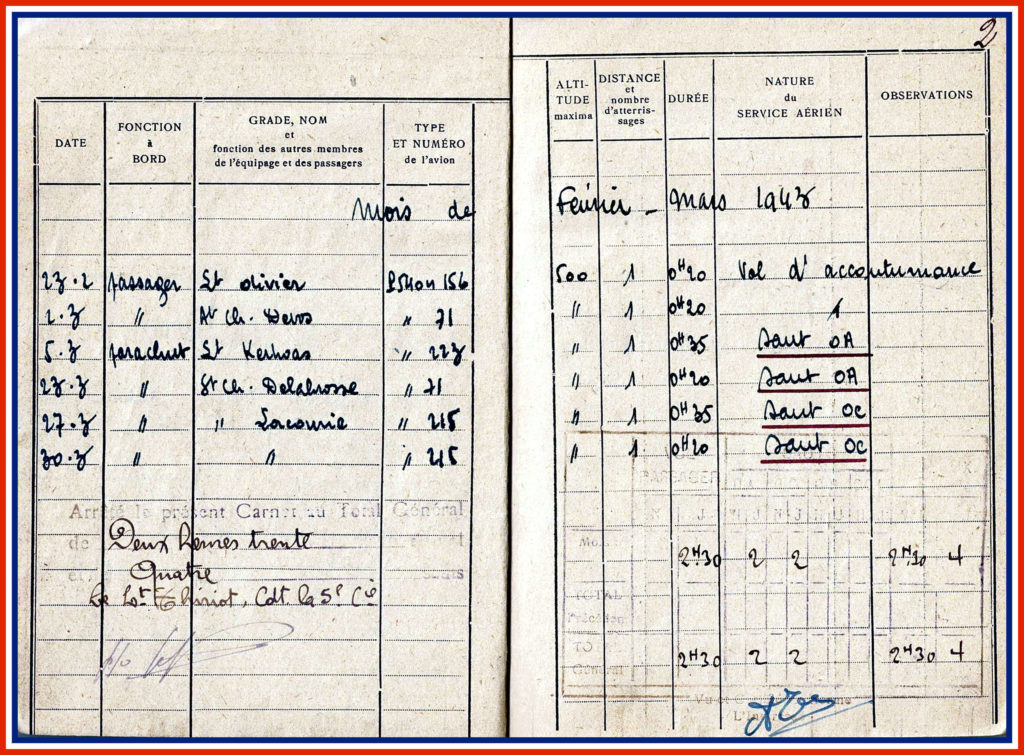 2
DATE
FONCTION
à
BORD
GRADE, NOM
et
fonction des autres membres
de l'équipage et des passagers
TYPE
ET NUMÉRO
de l'avion
ALTI-
TUDE
maxima
DISTANCE
et
nombre
d'atterris-
sages
DURÉE
NATURE
du
SERVICE AÉRIEN
OBSERVATIONS
Mois de Février - Mars 1943
23.2 passager Lt Olivier 156 500 1 0H20 Vol d'accoutumance
2.3 " Ch. " 71 " 1 0H20 "
5.3 parachut Lt " 223 " 1 0H35 Saut OA
23.3 " Ch. " 71 " 1 0H20 Saut OA
27.3 " " " 215 " 1 0H35 Saut OC
30.3 " " " 215 " 1 0H20 Saut OC
Arrêté le présent Carnet au Total Général
de Deux heures trente
et Quatre sauts
Le Lt Thiriot, Cdt la 5e Cie
PASSAGER
2H30 2 2 2H30 4
TOTAL
Précédent
TOTAL
Général
2H30 2 2 2H30 4